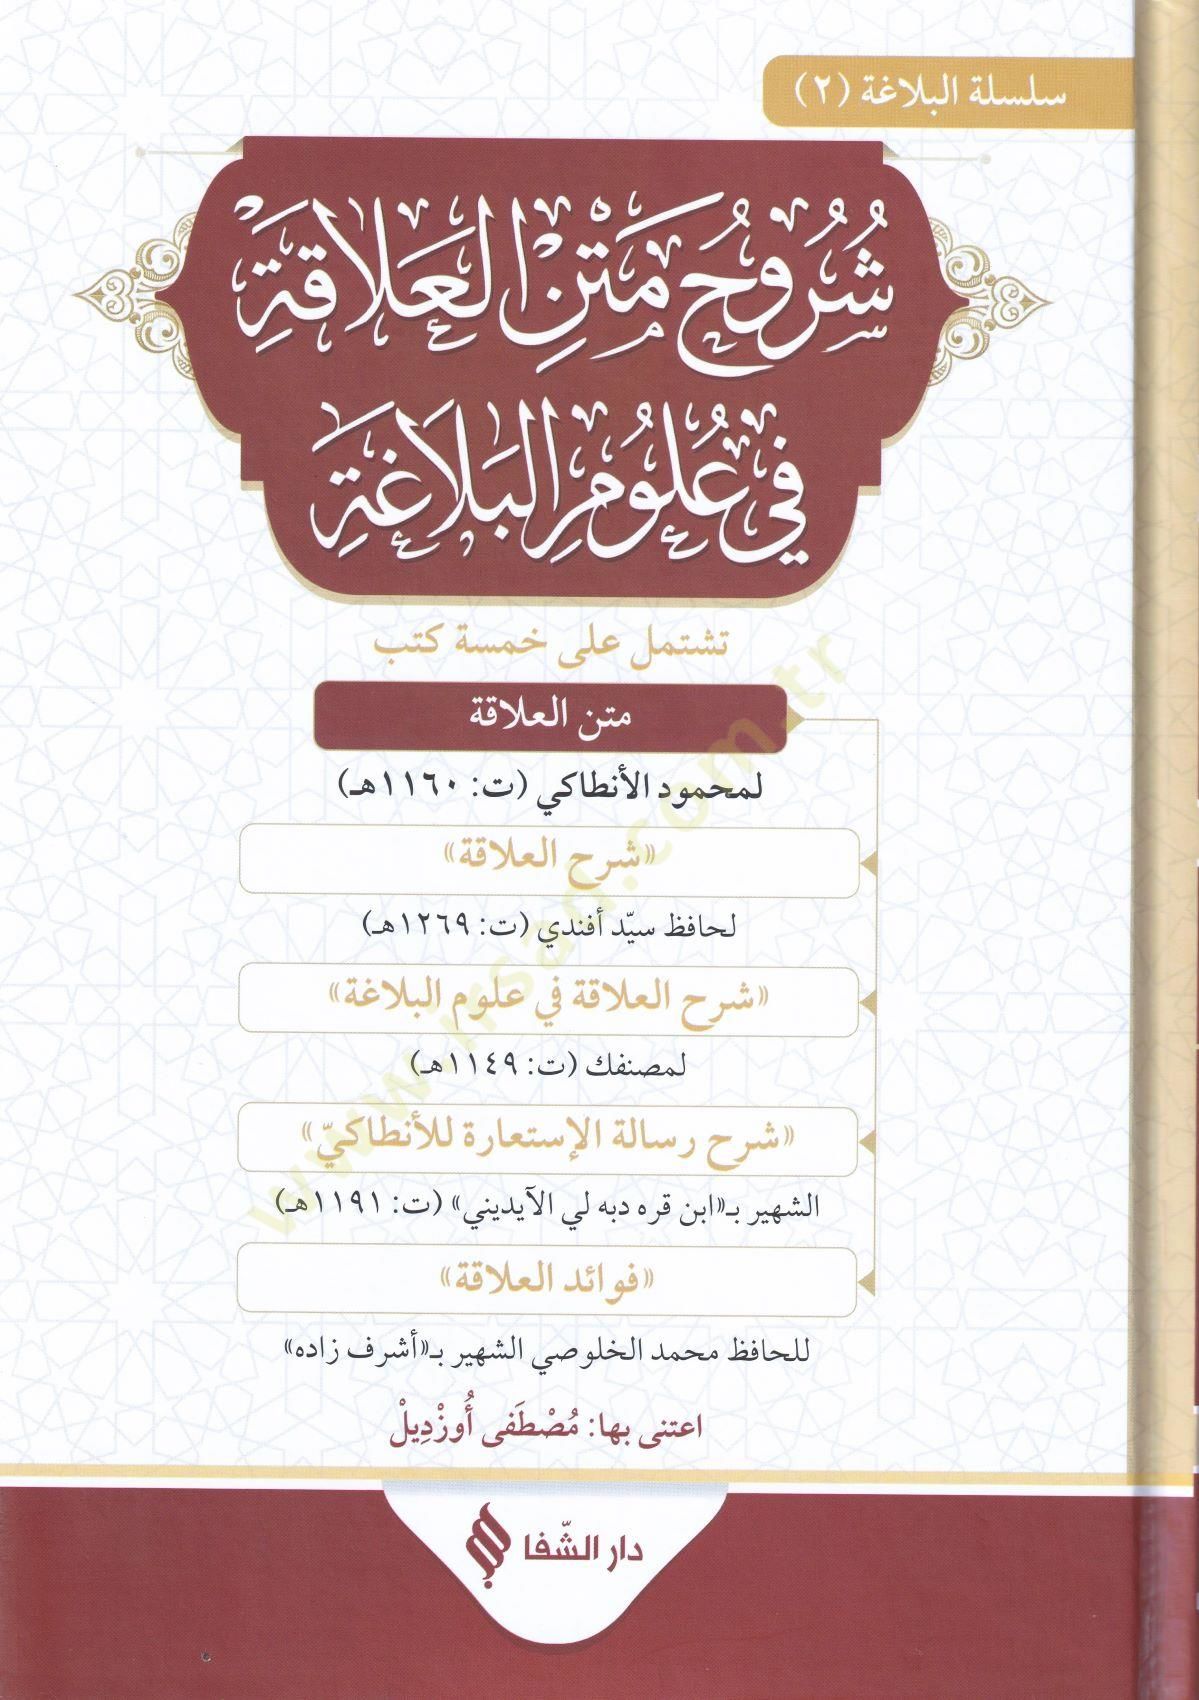 سلسلة البلاغة (٢)
شُرُوحُ مَتْنِ الْعَلَاقَةِ
فِي عُلُومِ الْبَلَاغَةِ
تشتمل على خمسة كتب
متن العلاقة
لمحمود الأنطاكي (ت: ١١٦٠هـ)
«شرح العلاقة»
لحافظ سيّد أفندي (ت: ١٢٦٩هـ)
«شرح العلاقة في علوم البلاغة»
لمصنفك (ت: ١١٤٩هـ)
«شرح رسالة الإستعارة للأنطاكيّ»
الشهير بـ«ابن قره دبه لي الآيديني» (ت: ١١٩١هـ)
«فوائد العلاقة»
للحافظ محمد الخلوصي الشهير بـ«أشرف زاده»
اعتنى بها: مُصْطَفى أُوزْدِيلْ
دار الشّفا
www.irsad.com.tr